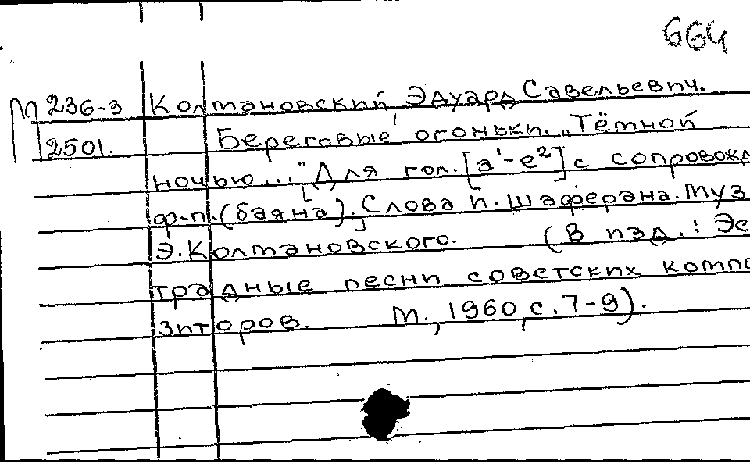 664
М 236-3 Колмановский, Эдуард Савельевич.
2501. Береговые огоньки. „Тёмной
ночью..." Для гол. [a¹-e²] с сопровожд
ф-п. (баяна). Слова И. Шаферана. Муз
Э. Колмановского. (В изд.: Эс
традные песни советских компо
зиторов. М., 1960, с. 7-9).